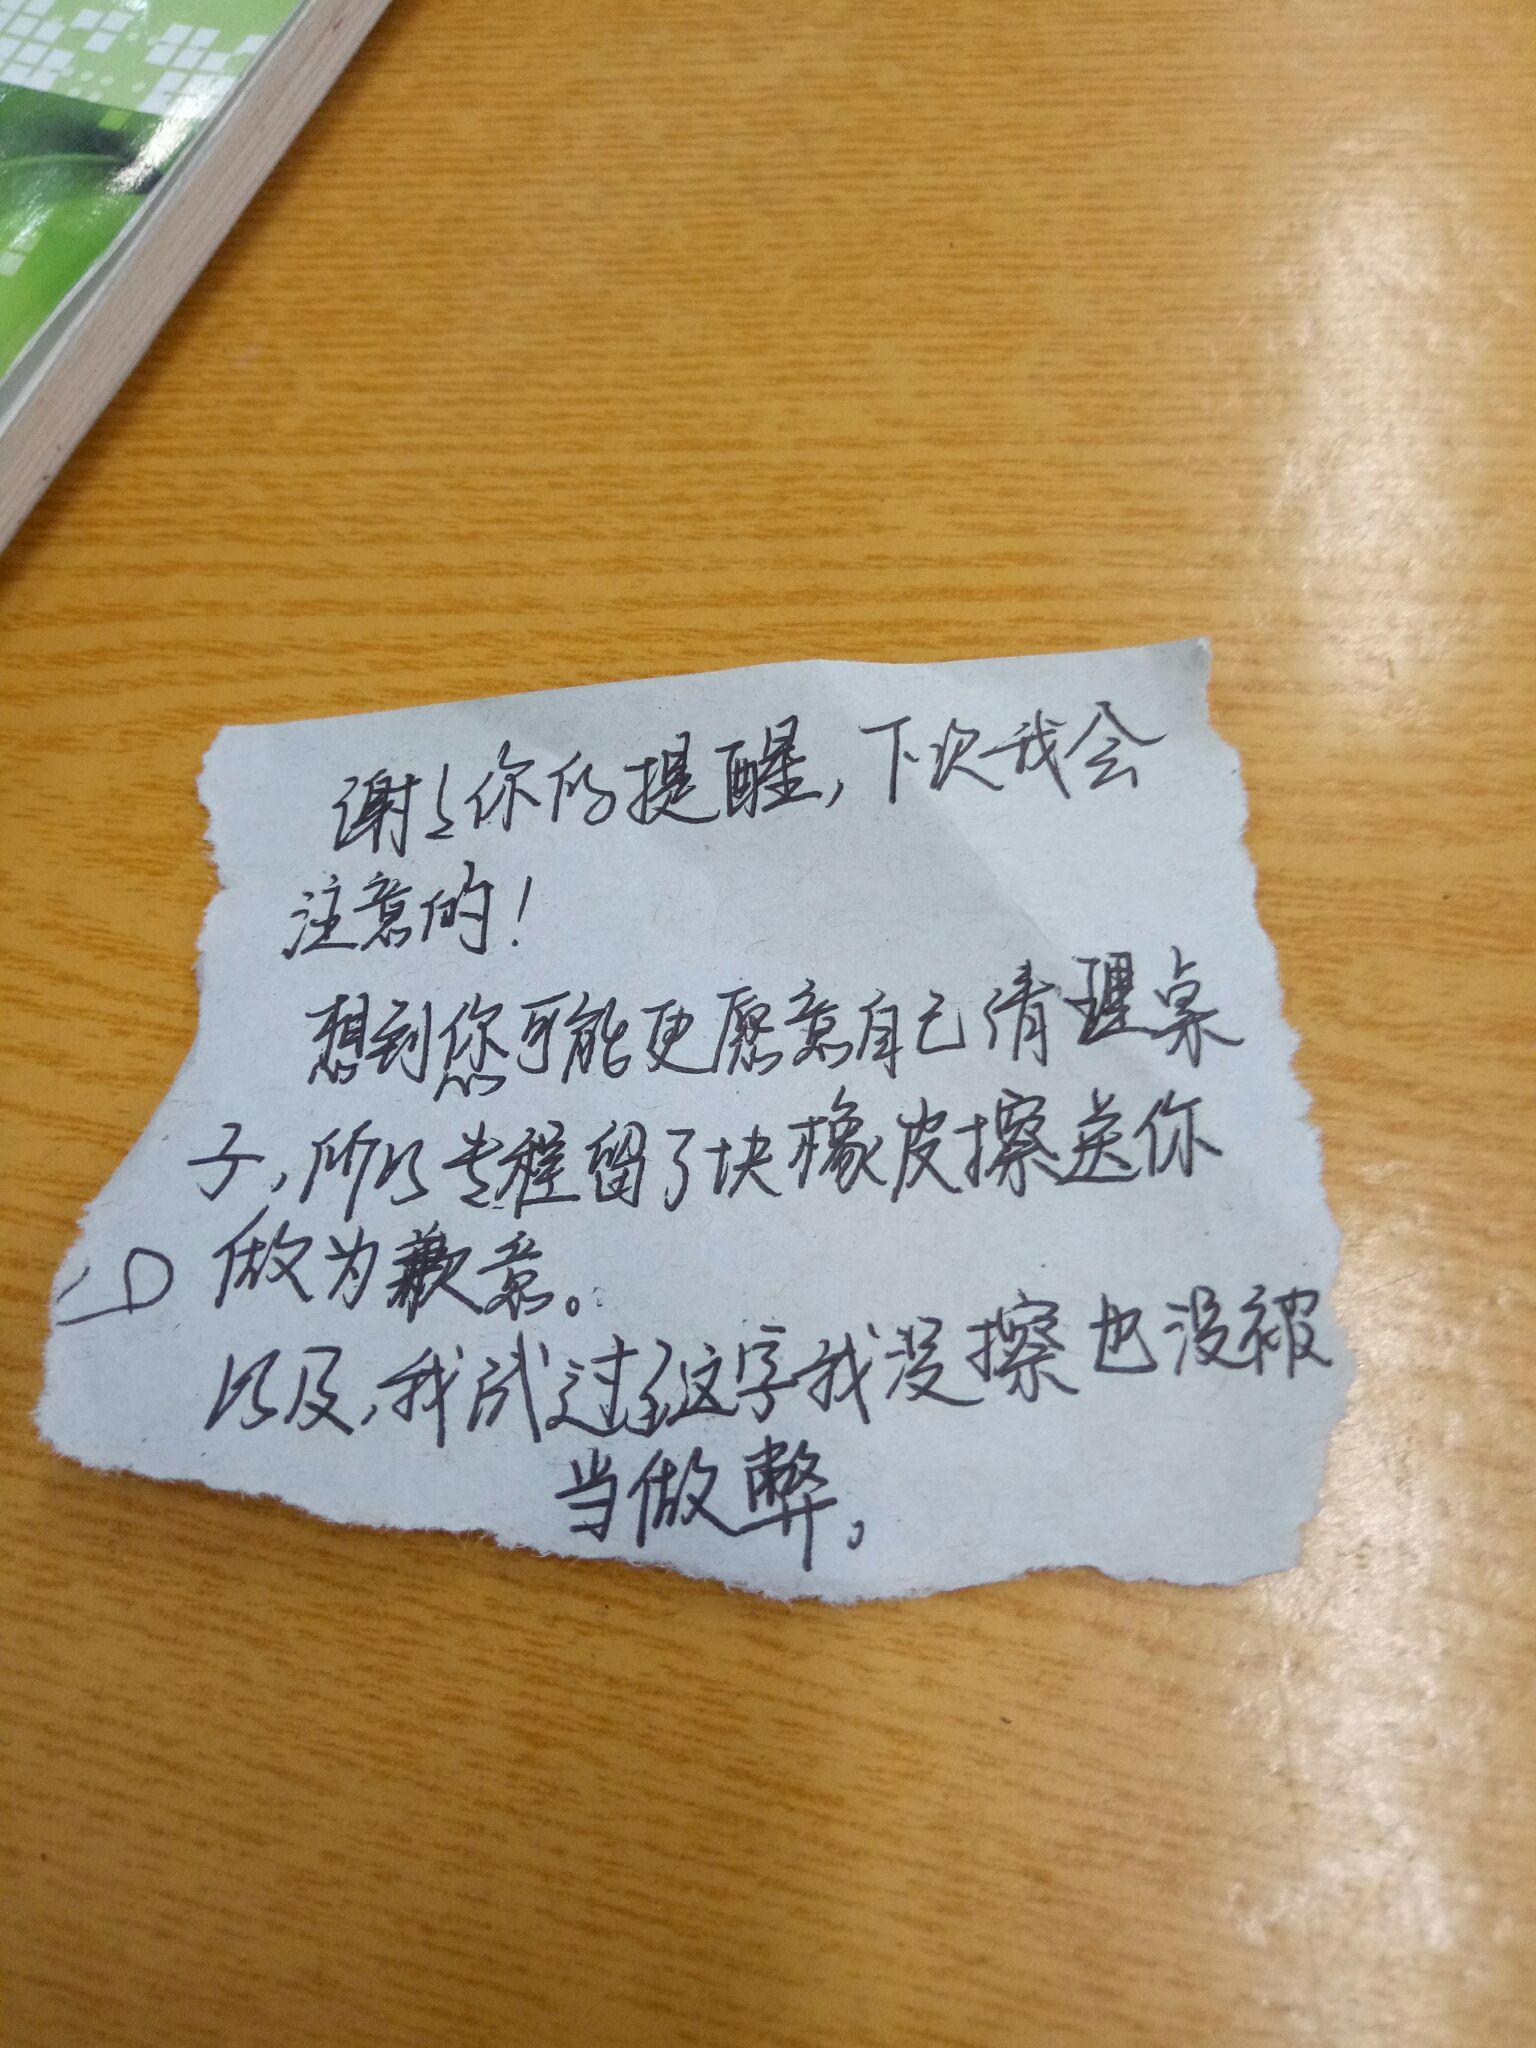 谢谢你的提醒,下次我会
注意的!
想到您可能更愿意自己清理桌
子,所以专程留了块橡皮擦送你
做为歉意。
以及,我试过了这字我没擦也没被
当做弊。